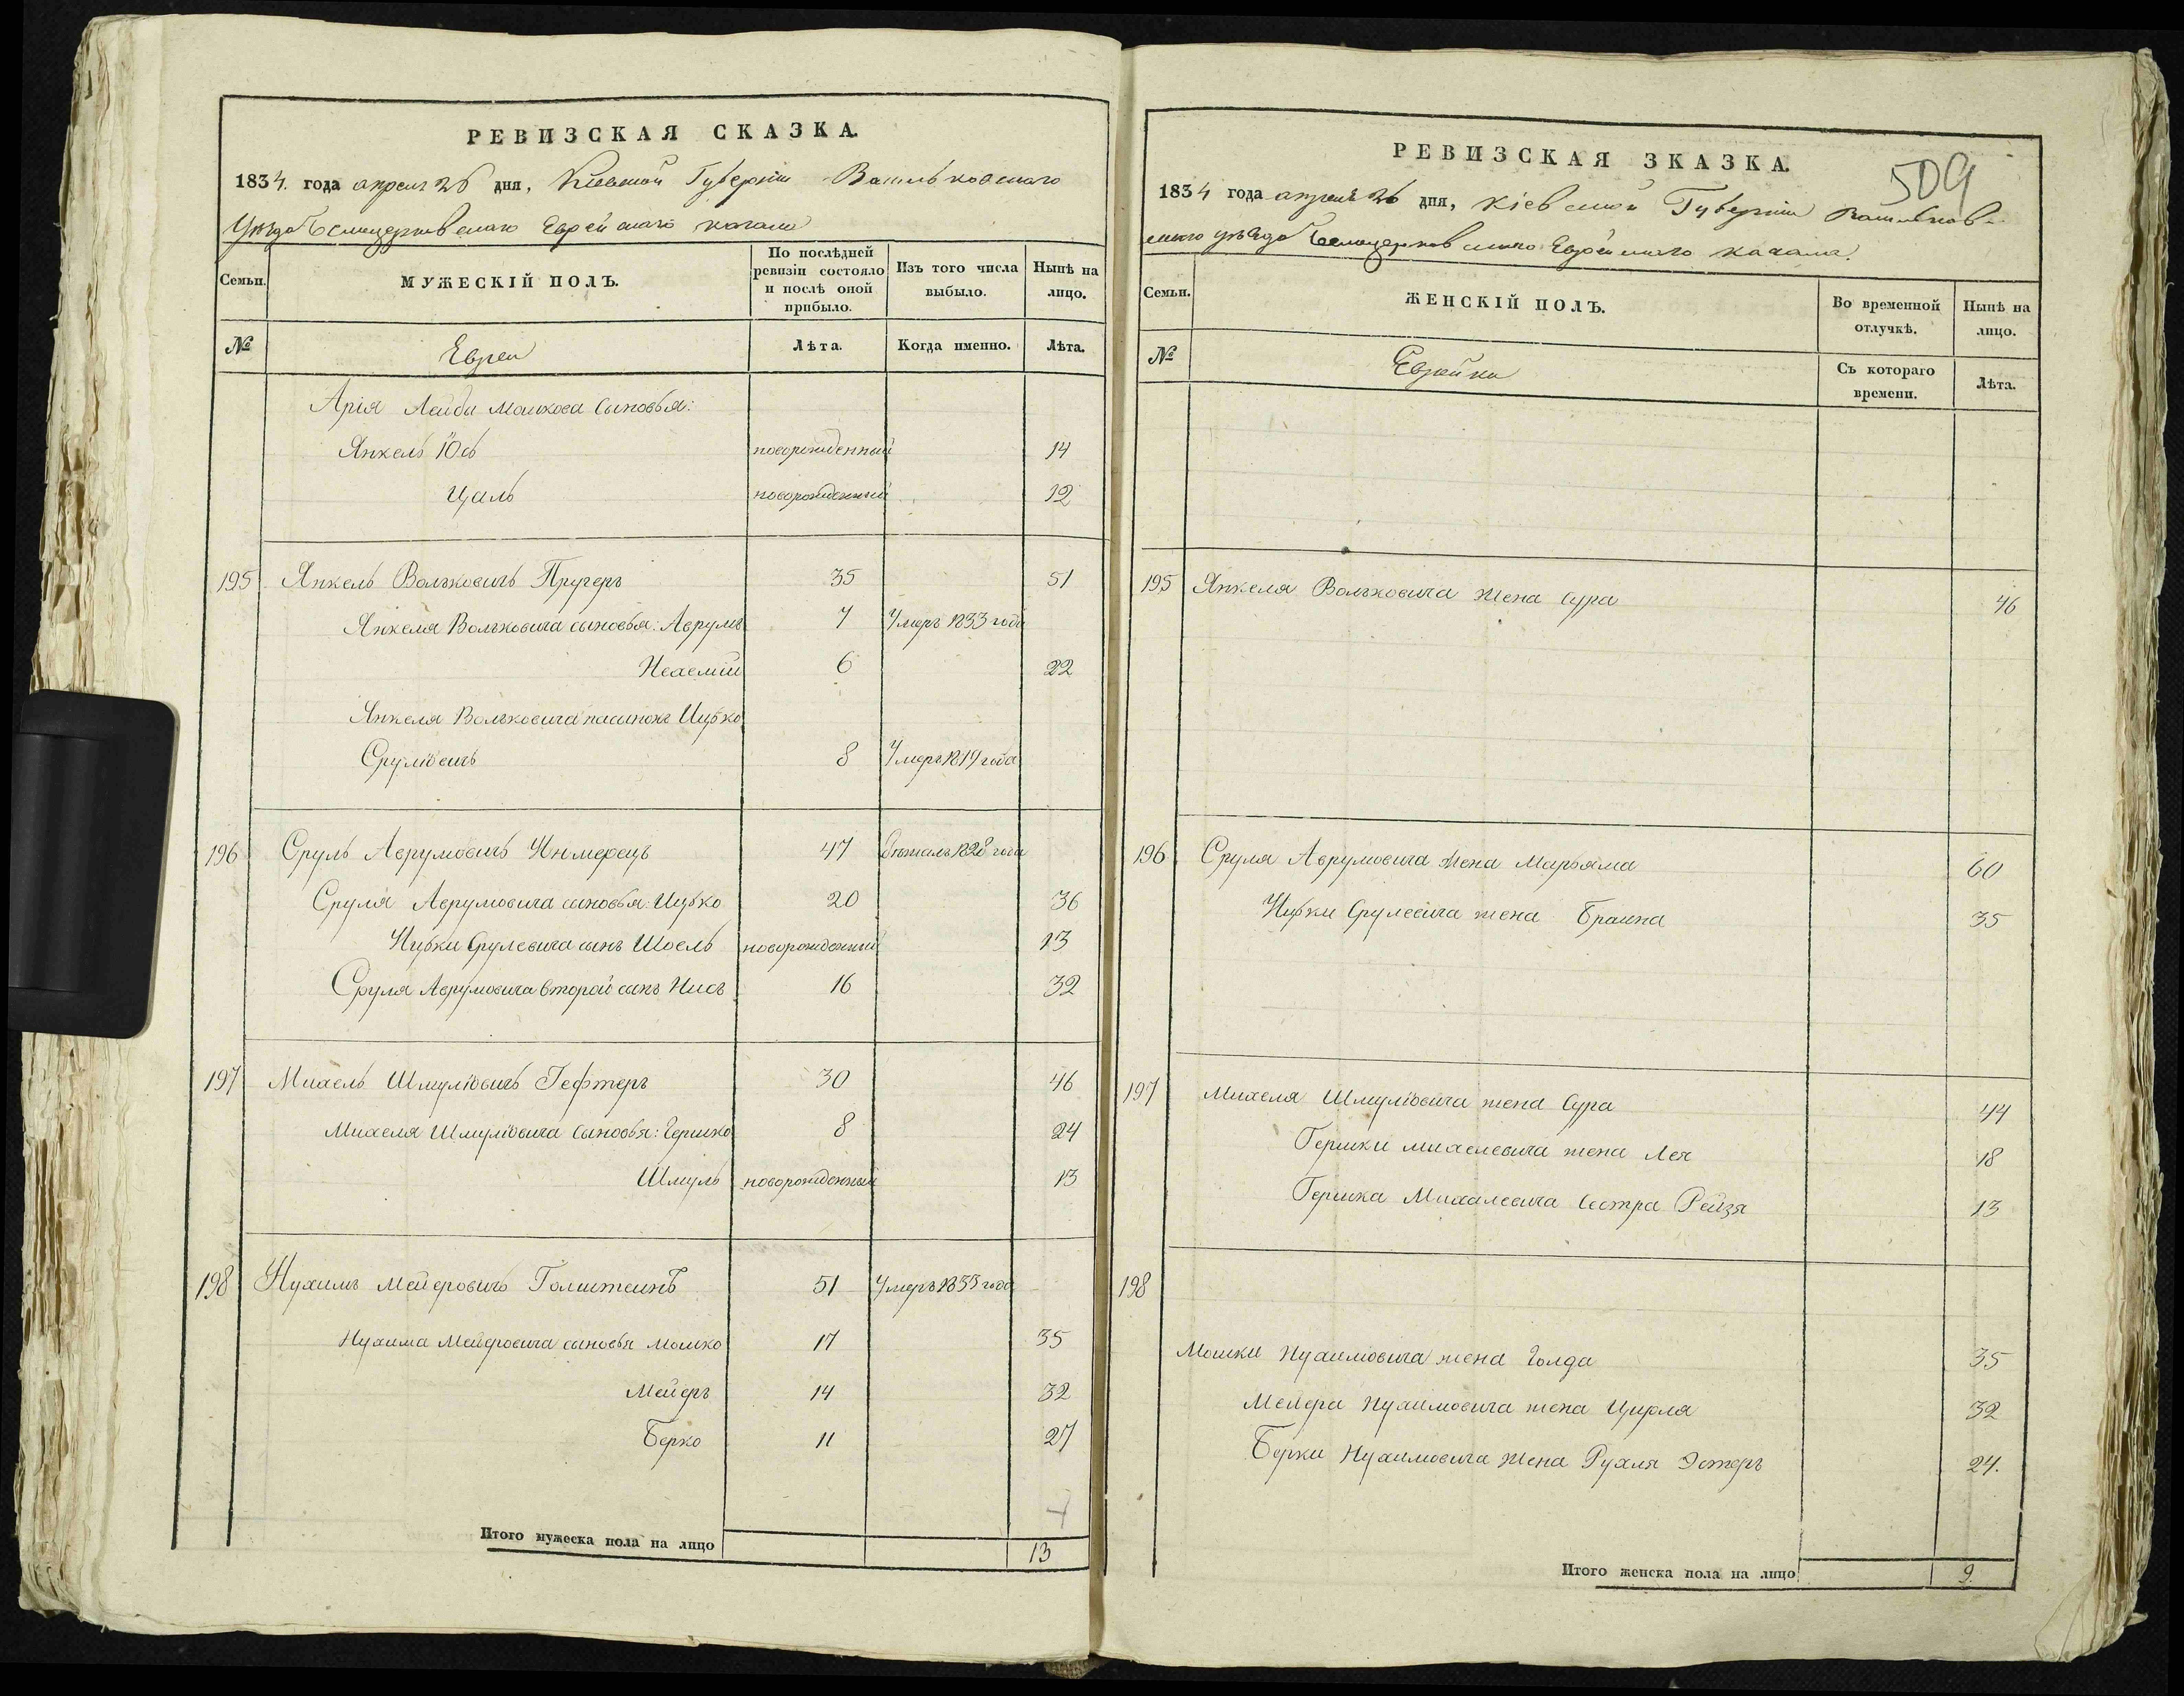 РЕВИЗСКАЯ СКАЗКА.
1834. года апреля 26 дня, Киевской Губернiи Васильковского
Уезда Белоцерковскаго Еврейского кагала
Семьи.
МУЖЕСКІЙ ПОЛЪ.
По послѣдней ревизіи состояло и послѣ оной прибыло.
Изъ того числа выбыло.
Нынѣ на лицо.
№
Евреи
Лѣта.
Когда именно.
Лѣта.
Арія Лейбы Мошкова Сыновья:
Янкель Iось новорожденный 14
Цаль новорожденный 12
195 Янкель Вольковичъ Пругеръ 35 51
Янкеля Вольковича сыновья: Аврумъ 7 Умеръ 1833 года
Нехемiй 6 22
Янкеля Вольковича пасынокъ Ицько
Срулiовичъ 8 Умеръ 1819 года
196 Сруль Аврумовичъ 47 бежалъ 1828 года
Сруля Аврумовича сыновья: Ицько 20 36
Ицьки Срулевича сынъ Шоель новорожденный 13
Сруля Аврумовича второй сынъ Нисъ 16 32
197 Михель Шмулiовичъ Гефтеръ 30 46
Михеля Шмулiовича Сыновья: Гершко 8 24
Шмуль новорожденный 13
198 Нухимъ Мейеровичъ Голштейнъ 51 Умеръ 1833 года
Нухима Мейеровича сыновья Мошко 17 35
Мейеръ 14 32
Берко 11 27
Итого мужеска пола на лицо 13
509
РЕВИЗСКАЯ ЗКАЗКА.
1834 года апреля 26 дня, Кiевской Губернiи Васильков-
скаго уѣзда Белоцерковскаго Еврейскаго кагала.
Семьи.
ЖЕНСКІЙ ПОЛЪ.
Во временной отлучкѣ.
Нынѣ на лицо.
№
Еврейки
Съ котораго времени.
Лѣта.
195 Янкеля Вольковича жена Сура 46
196 Сруля Аврумовича жена Марьяма 60
Ицьки Срулевича жена Браина 35
197 Михеля Шмулiовича жена Сура 44
Гершки михелевича жена Лея 18
Гершка Михалевича Сестра Рейзя 13
198
Мошки Нухимовича жена Голда 35
Мейера Нухимовича жена Цирля 32
Берки Нухимовича жена Рухля Эстеръ 24.
Итого женска пола на лицо 9.